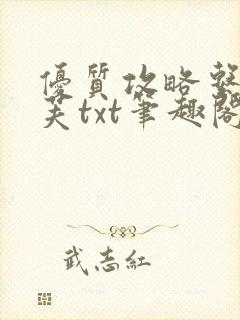 優質攻略整
芙txt筆趣閣
武志紅